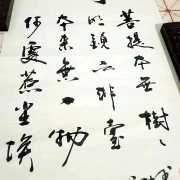 菩提本无樹
明鏡亦非臺
本来無一物
何處惹尘埃